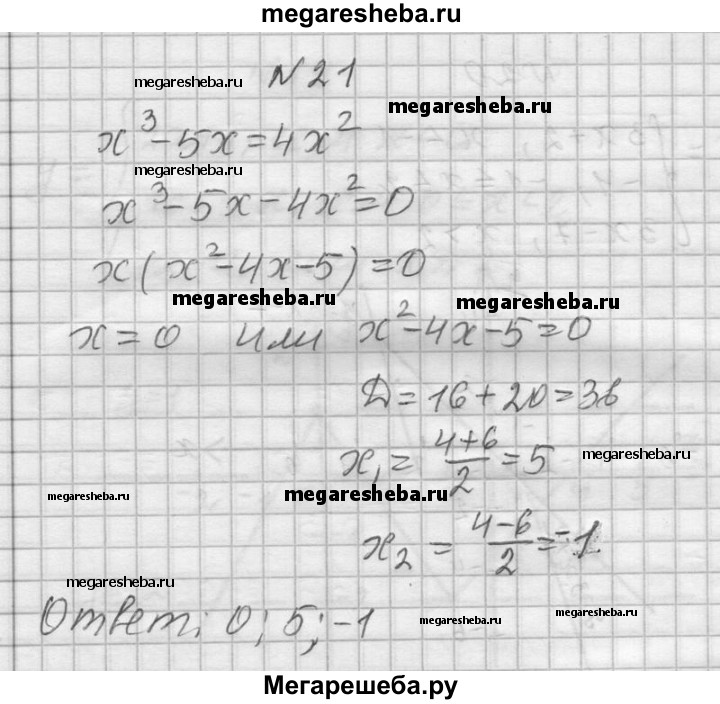 megaresheba.ru
N 21
megaresheba.ru
megaresheba.ru
x³-5x=4x²
megaresheba.ru
x³-5x-4x²=0
x(x²-4x-5)=0
megaresheba.ru megaresheba.ru
x=0 или x²-4x-5=0
D=16+20=36
x₁=(4+6)/2=5 megaresheba.ru
megaresheba.ru megaresheba.ru
x₂=(4-6)/2=-1
megaresheba.ru
Ответ: 0; 5; -1
megaresheba.ru megaresheba.ru
Мегарешеба.ру